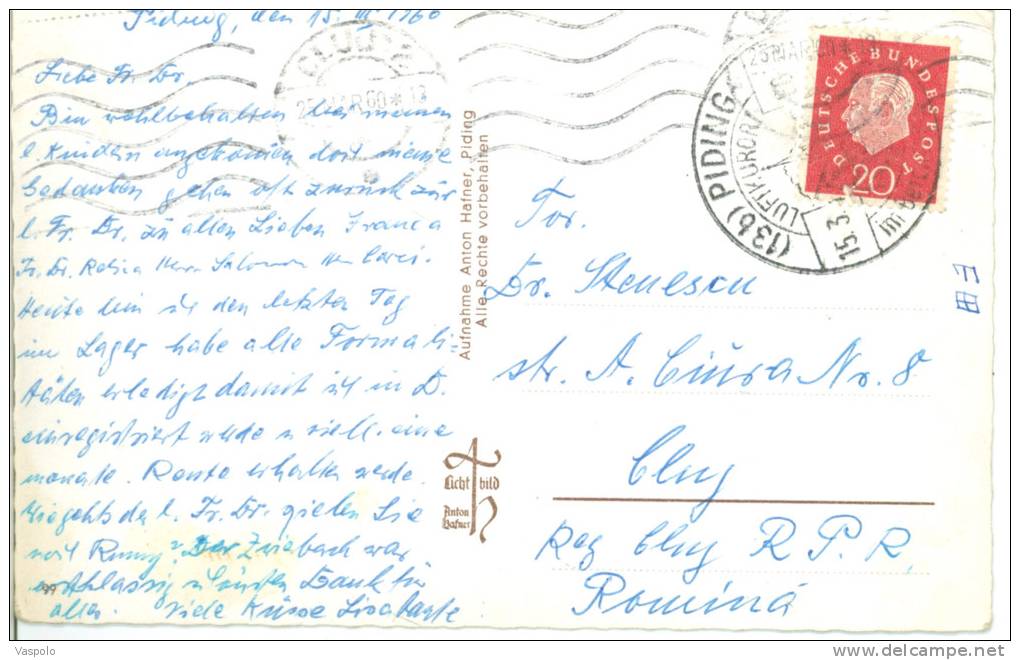 Piding, den 15. III 1960
Liebe Fr. Dr.
Bin wohlbehalten bei meinen
l. Kindern angekommen doch meine
Gedanken gehen oft zurück zur
l. Fr. Dr. zu allen Lieben
Fr. Dr. Herr Salomon
Heute bin ich den letzten Tag
im Lager habe alle Formali-
täten erledigt damit ich in D.
einregistriert werde u vielt. eine
monatl. Rente erhalten werde.
Wie gehts der l. Fr. Dr. Sie
mit Rumy? Der Zwieback war
erstklassig u Dank für
alles. Viele Küsse
Aufnahme Anton Hafner, Piding
Alle Rechte vorbehalten
Licht bild
Anton Hafner
99
CLUJ
25 MAR 60 * 13
25 MAR 60 * 13
(13b) PIDING
LUFTKURORT
15.3.
DEUTSCHE BUNDESPOST
20
Tov.
Dr. Stenescu
str. A. Ciura Nr. 8
Cluj
Reg Cluj R. P. R.
Romina
Vaspolo
delcampe.net